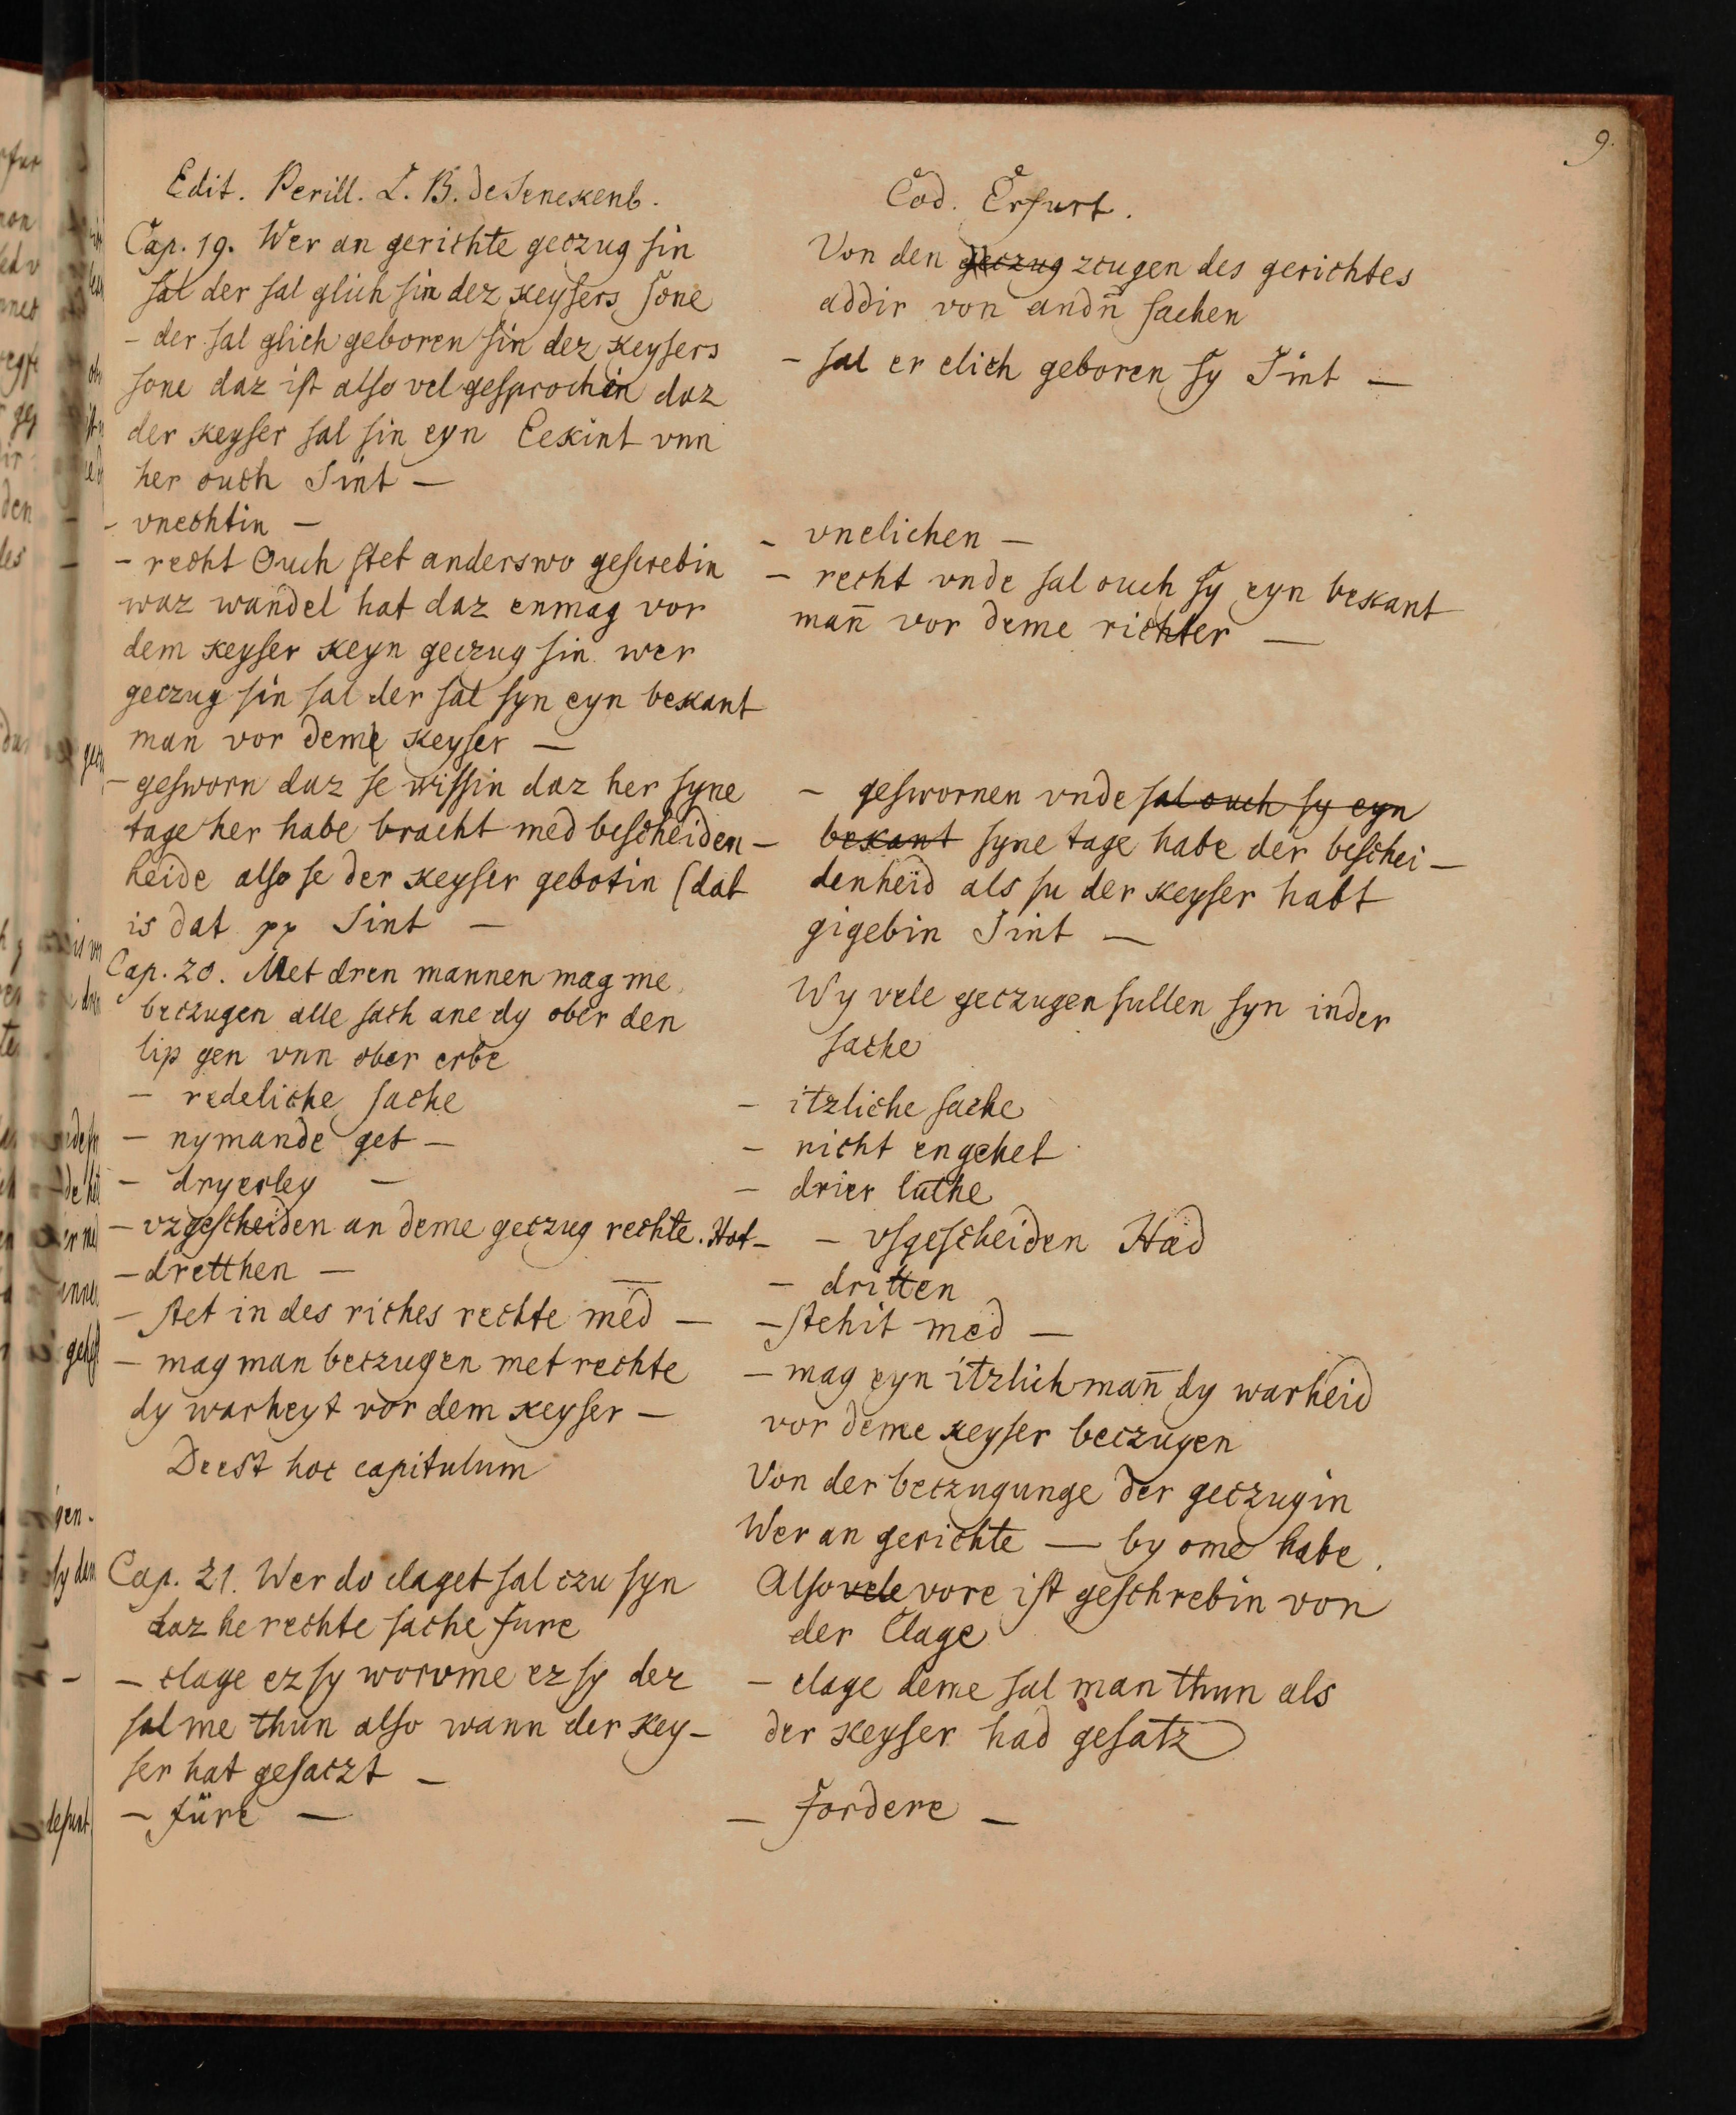 9.
Edit. Perill. L. B. de Senekenb.
Cap. 19. Wer an gerichte geczug sin
sal der sal glich sin dez keysers sone
- der sal glich geboren sin dez keysers
sone daz ist also vel gesprochin daz
der keyser sal sin eyn Eekint vnn
her ouch Sint —
- vnechtin —
- recht Ouch stet anderswo gescrebin
waz wandel hat daz enmag vor
dem keyser keyn geczug sin wer
geczug sin sal der sal syn eyn bekant
man vor deme keyser —
- gesworn daz se wissin daz her syne
tage her habe bracht med bescheiden-
heide also se der keyser gebotin (dat
is dat pp Sint —
Cap. 20. Met dren mannen mag me
beczugen alle sach ane dy ober den
lip gen vnn ober erbe
- redeliche sache
- nymande get —
- dryerley —
- vzgescheiden an deme geczug rechte. Hat —
- dretthen —
- stet in des riches rechte med —
- mag man beczugen met rechte
dy warheyt vor dem keyser —
Deest hoc capitulum
Cap. 21. Wer do claget sal czu syn
daz he rechte sache fure
- clage ez sy worvme ez sy dez
sal me thun also wann der key-
ser hat gesaczt —
- füre —
Cod. Erfurt.
Von den geczug zcugen des gerichtes
addir von andn̄ sachen
- sal er elich geboren sy Sint —
- vnelichen —
- recht vnde sal ouch sy eyn bekant
man̄ vor deme richter —
- geswornen vnde sal ouch sy eyn
bekant syne tage habe der beschei-
denheid als su der keyser habt
gigebin Sint —
Wy vele geczugen sullen syn in der
sache
- itzliche sache
- nicht engehet
- drier luthe
- vsgescheiden Had
- dritten
- stehit med —
- mag eyn itzlich man̄ dy warheid
vor deme keyser beczugen
Von der beczugunge der geczugin
Wer an gerichte — by ome habe.
Also vele vore ist geschrebin von
der Clage
- clage deme sal man thun als
der keyser had gesatz
- fordere —